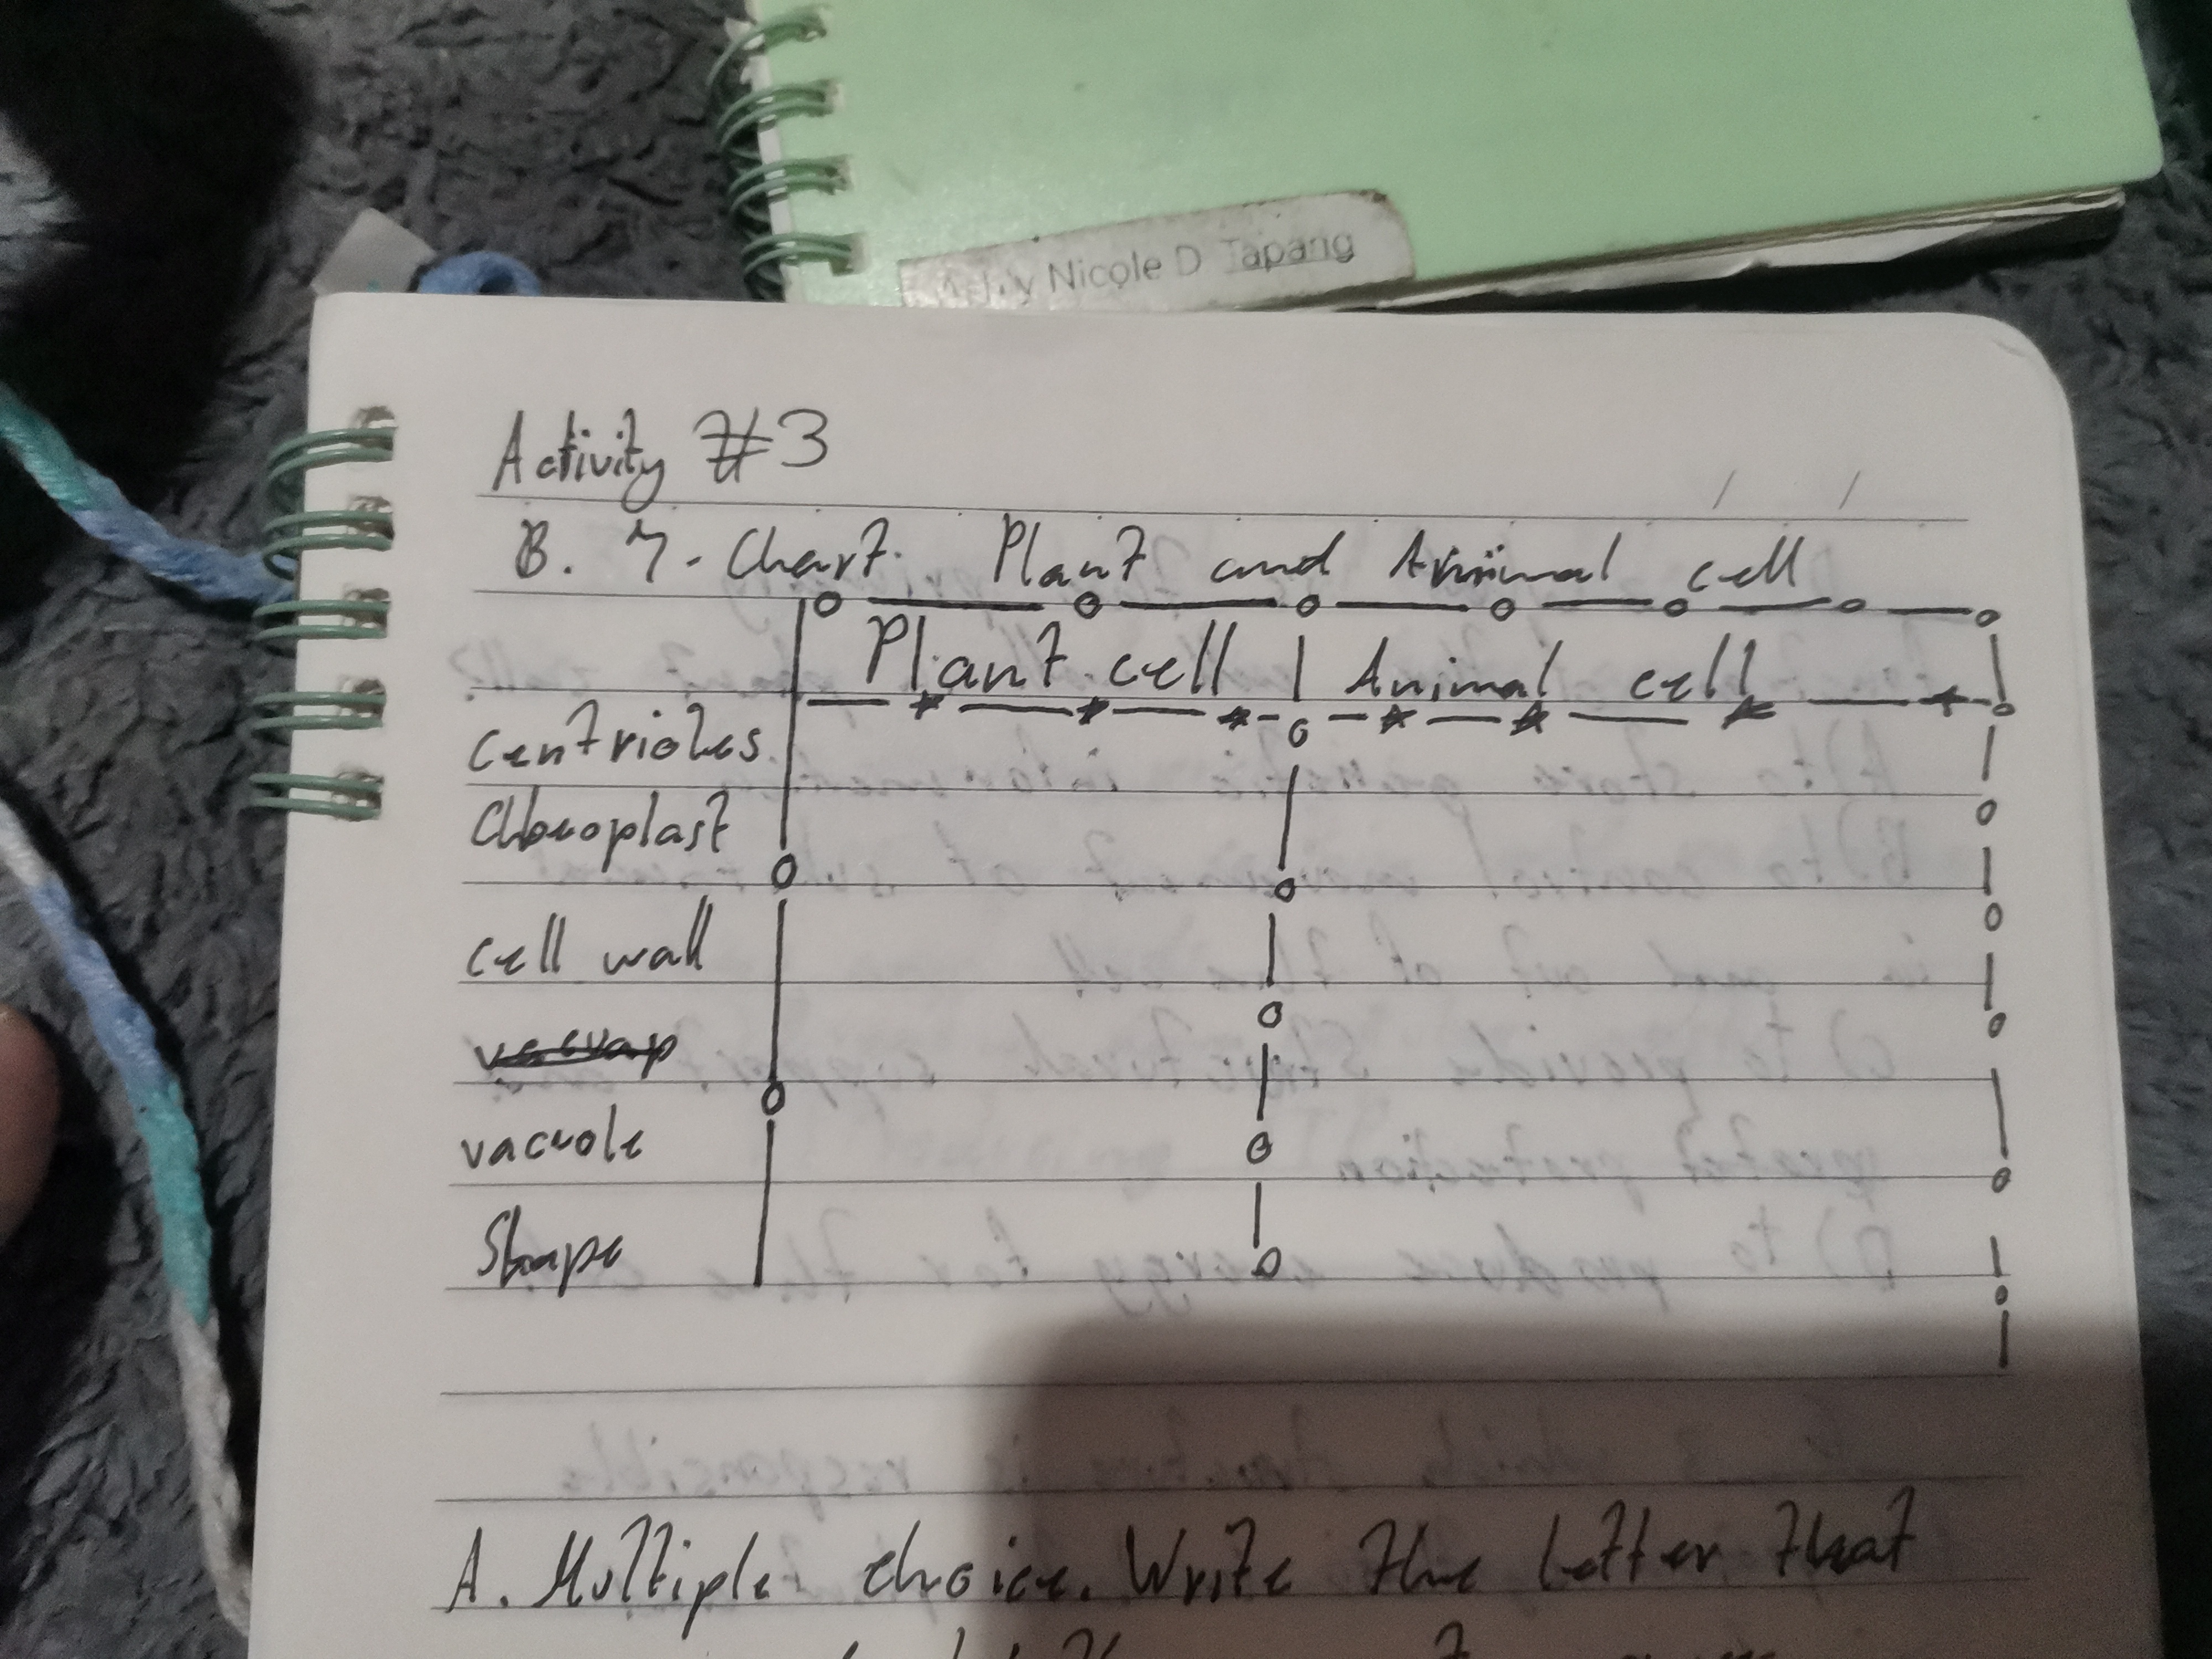 Nicole D Tapang
Activity #3
B. T-Chart. Plant and Animal cell
Plant cell | Animal cell
Centrioles
Chloroplast
cell wall
vacuole
Shape
A. Multiple choice. Write the letter that